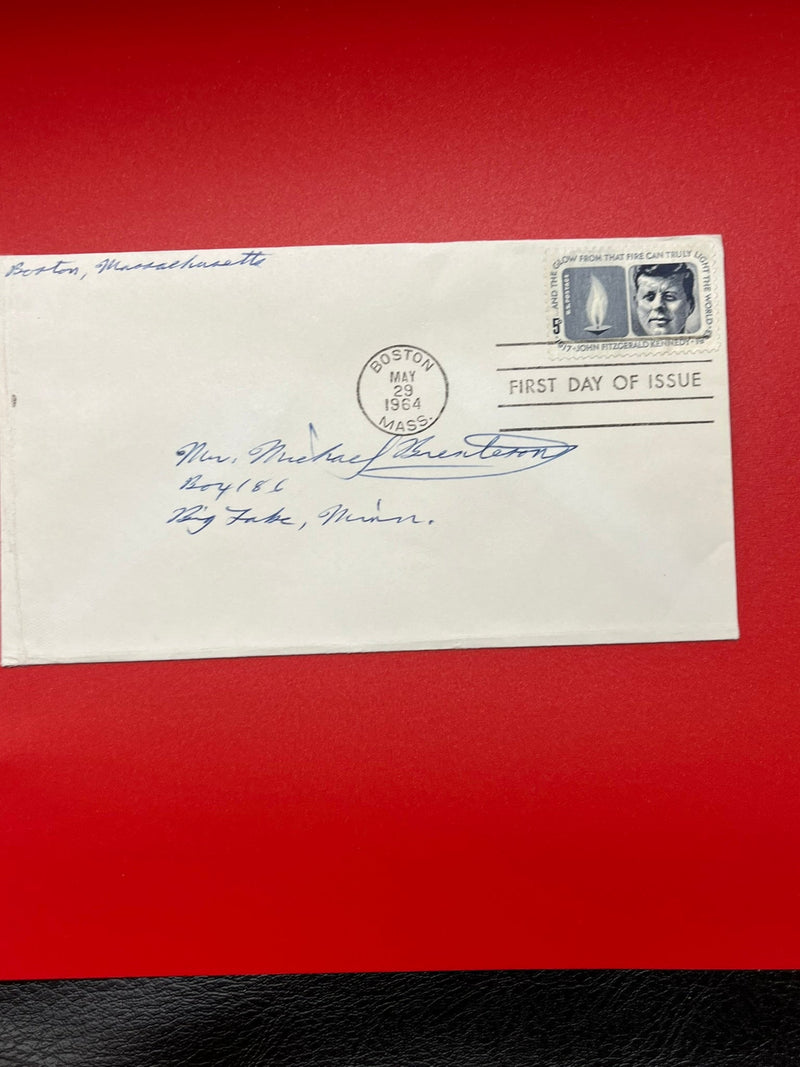 Boston, Massachusetts
AND THE GLOW FROM THAT FIRE CAN TRULY LIGHT THE WORLD
U.S. POSTAGE
5¢
JOHN FITZGERALD KENNEDY
BOSTON
MAY
29
1964
MASS.
FIRST DAY OF ISSUE
Mr. Michael
Box 186
Big Lake, Minn.